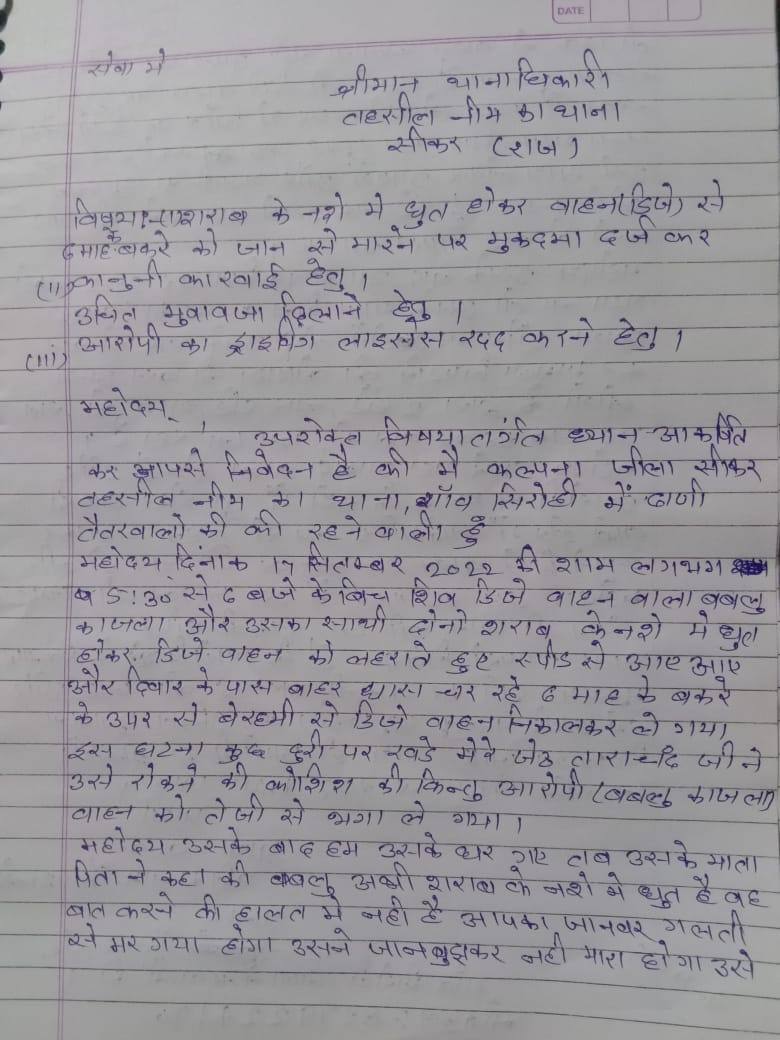 DATE
सेवा मे
श्रीमान थानाधिकारी
तहसील नीम का थाना
सीकर (राज)
विषय:- शराब के नशे मे धुत होकर वाहन(डिजे) से
6 माह के बकरे को जान से मारने पर मुकदमा दर्ज कर
(ii) कानुनी कारवाई हेतु।
उचित मुवावजा दिलाने हेतु।
(iii) आरोपी का ड्राइविंग लाइसेंस रदद करने हेतु।
महोदय,
उपरोक्त विषयातर्गत ध्यान आकर्षित
कर आपसे निवेदन है की मै कल्पना जीला सीकर
तहसील नीम का थाना, गाँव सिरोही में ढाणी
तैतरवालो की की रहने वाली हुँ
महोदय दिंनाक 17 सितम्बर 2022 की शाम लगभग
5:30 से 6 बजे के बिच शिव डिजे वाहन वाला बबलु
काजला और उसका साथी दोनो शराब के नशे मे धुत
होकर डिजे वाहन को लहराते हुए स्पीड से आए आए
और दिवार के पास बाहर घास चर रहे 6 माह के बकरे
के उपर से बेरहमी से डिजे वाहन निकालकर ले गया
इस घटना कुछ दुरी पर खडे मेरे जेठ ताराचंद जी ने
उसे रोकने की कोशिश की किन्तु आरोपी (बबलु काजला)
वाहन को तेजी से भगा ले गया।
महोदय उसके बाद हम उसके घर गए तब उसके माता
पिता ने कहा की बबलु अभी शराब के नशे मे धुत है वह
बात करने की हालत मे नही है आपका जानवर गलती
से मर गया होगा उसने जानबुझकर नही मारा होगा उसे